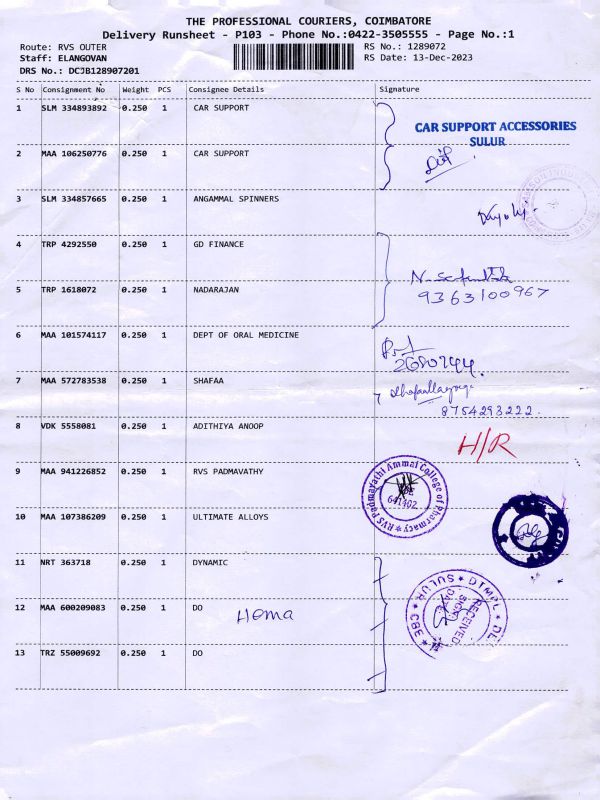 THE PROFESSIONAL COURIERS, COIMBATORE
Delivery Runsheet - P103 - Phone No.:0422-3505555 - Page No.:1
Route: RVS OUTER
RS No.: 1289072
Staff: ELANGOVAN
RS Date: 13-Dec-2023
DRS No.: DCJB128907201
S No Consignment No Weight PCS Consignee Details Signature
1 SLM 334893892 0.250 1 CAR SUPPORT
CAR SUPPORT ACCESSORIES
SULUR
2 MAA 106250776 0.250 1 CAR SUPPORT
3 SLM 334857665 0.250 1 ANGAMMAL SPINNERS
4 TRP 4292550 0.250 1 GD FINANCE
5 TRP 1618072 0.250 1 NADARAJAN
9363100967
6 MAA 101574117 0.250 1 DEPT OF ORAL MEDICINE
2680744
7 MAA 572783538 0.250 1 SHAFAA
8754293222.
8 VDK 5558081 0.250 1 ADITHIYA ANOOP
H/R
9 MAA 941226852 0.250 1 RVS PADMAVATHY
RVS Padmavathi Ammal College of Pharmacy
641402
10 MAA 107386209 0.250 1 ULTIMATE ALLOYS
11 NRT 363718 0.250 1 DYNAMIC
12 MAA 600209083 0.250 1 DO
Hema
DTMPL SULUR CBE
RECEIVED
SIGN
DATE
13 TRZ 55009692 0.250 1 DO